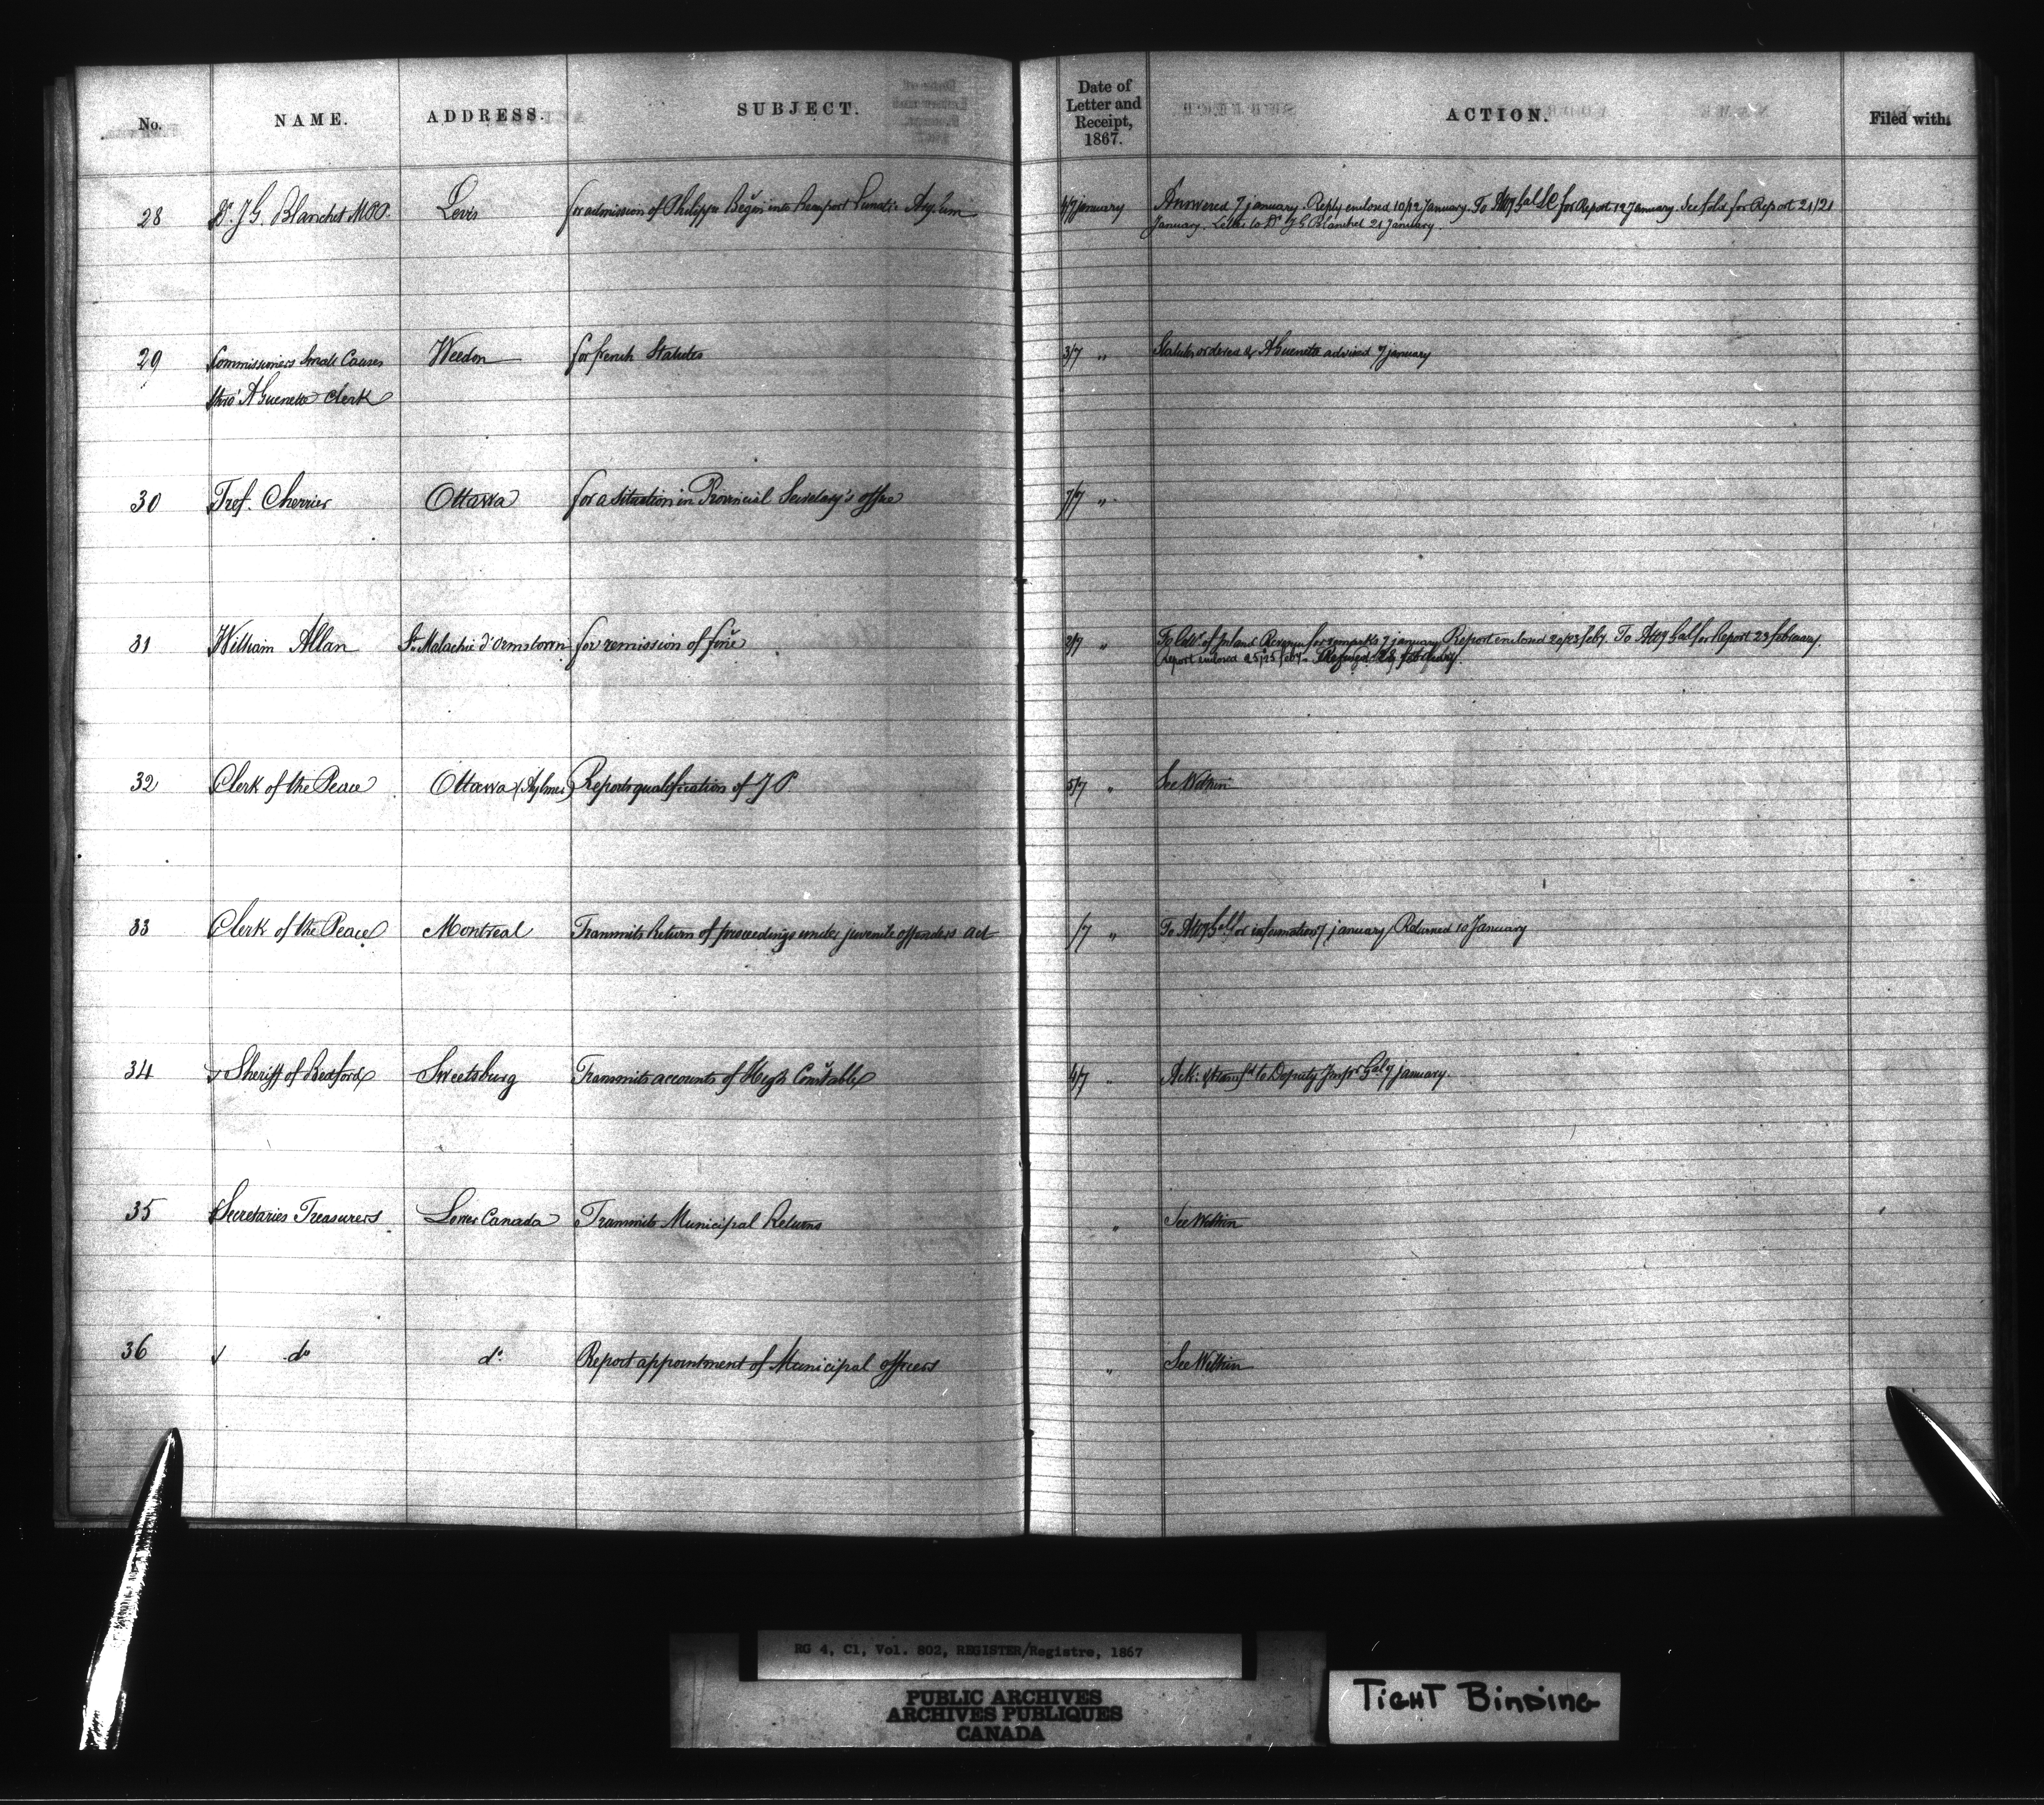 No. NAME. ADDRESS. SUBJECT. Date of Letter and Receipt, 1867. ACTION. Filed with:
28 Dr. J G. Blanchet MPP. Levis for admission of Philippe Begin into Beauport Lunatic Asylum 4/7 January Answered 7 january. Reply enclosed 10/12 January. To Atty Gal LC for Report 12 January. See fold for Report 21/21
January. Letter to Dr J G Blanchet 21 January.
29 Commissioners Small Causes Weedon for french Statutes 3/7 " Statutes ordered & A Guenette advised 7 january
thro' A Guenette Clerk
30 Prof. Cherrier Ottawa for a situation in Provincial Secretary's office 7/7 "
31 William Allan St. Malachie d'Ormstown for remission of fine 2/7 " To of Inland Revenue for remarks 7 january Report enclosed 20/23 feby. To Atty Gal for Report 23 february.
Report enclosed 25/25 feby. Refused 28 february.
32 Clerk of the Peace Ottawa (Aylmer) Reports qualification of J P 5/7 " See Within
33 Clerk of the Peace Montreal Transmits Return of proceedings under juvenile offenders act /7 " To Atty Gal for information 7 january Returned 10 January
34 Sheriff of Bedford Sweetsburg Transmits accounts of High Constable 4/7 " Ack: & transfd to Deputy Inspr Gal 7 january.
35 Secretaries Treasurers Lower Canada Transmits Municipal Returns " See Within
36 do do Report appointment of Municipal officers " See Within
RG 4, C1, Vol. 802, REGISTER/Registre, 1867
PUBLIC ARCHIVES
ARCHIVES PUBLIQUES
CANADA
TIGHT BINDING